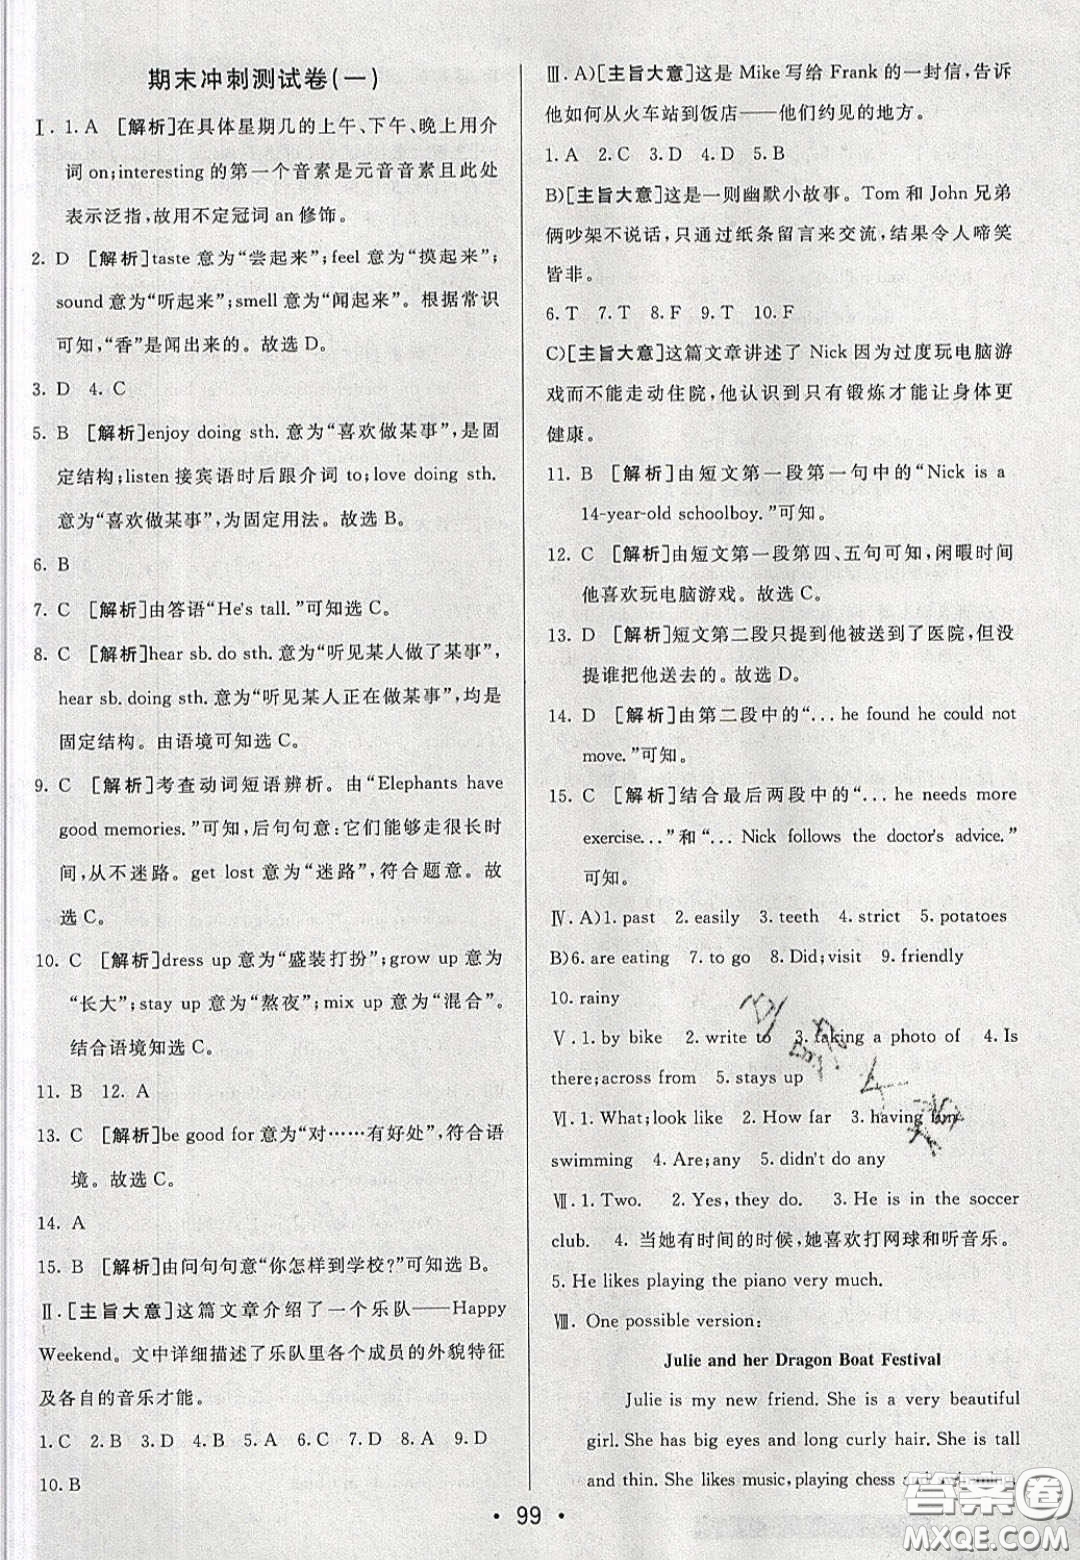 期末冲刺测试卷(一)
Ⅰ. 1. A [解析]在具体星期几的上午、下午、晚上用介
词on;interesting的第一个音素是元音音素且此处
表示泛指,故用不定冠词an修饰。
2. D [解析]taste意为“尝起来”;feel意为“摸起来”;
sound意为“听起来”;smell意为“闻起来”。根据常识
可知,“香”是闻出来的。故选D。
3. D 4. C
5. B [解析]enjoy doing sth.意为“喜欢做某事”,是固
定结构;listen接宾语时后跟介词to;love doing sth.
意为“喜欢做某事”,为固定用法。故选B。
6. B
7. C [解析]由答语“He's tall.”可知选C。
8. C [解析]hear sb. do sth.意为“听见某人做了某事”,
hear sb. doing sth.意为“听见某人正在做某事”,均是
固定结构。由语境可知选C。
9. C [解析]考查动词短语辨析。由“Elephants have
good memories.”可知,后句句意:它们能够走很长时
间,从不迷路。get lost意为“迷路”,符合题意。故
选C。
10. C [解析]dress up意为“盛装打扮”;grow up意为
“长大”;stay up意为“熬夜”;mix up意为“混合”。
结合语境知选C。
11. B 12. A
13. C [解析]be good for意为“对……有好处”,符合语
境。故选C。
14. A
15. B [解析]由问句句意“你怎样到学校?”可知选B。
Ⅱ. [主旨大意]这篇文章介绍了一个乐队——Happy
Weekend。文中详细描述了乐队里各个成员的外貌特征
及各自的音乐才能。
1. C 2. B 3. D 4. D 5. C 6. B 7. D 8. A 9. D
10. B
Ⅲ. A)[主旨大意]这是Mike写给Frank的一封信,告诉
他如何从火车站到饭店——他们约见的地方。
1. A 2. C 3. D 4. D 5. B
B)[主旨大意]这是一则幽默小故事。Tom和John兄弟
俩吵架不说话,只通过纸条留言来交流,结果令人啼笑
皆非。
6. T 7. T 8. F 9. T 10. F
C)[主旨大意]这篇文章讲述了Nick因为过度玩电脑游
戏而不能走动住院,他认识到只有锻炼才能让身体更
健康。
11. B [解析]由短文第一段第一句中的“Nick is a
14-year-old schoolboy.”可知。
12. C [解析]由短文第一段第四、五句可知,闲暇时间
他喜欢玩电脑游戏。故选C。
13. D [解析]短文第二段只提到他被送到了医院,但没
提谁把他送去的。故选D。
14. D [解析]由第二段中的“... he found he could not
move.”可知。
15. C [解析]结合最后两段中的“... he needs more
exercise...”和“... Nick follows the doctor's advice.”
可知。
Ⅳ. A)1. past 2. easily 3. teeth 4. strict 5. potatoes
B)6. are eating 7. to go 8. Did;visit 9. friendly
10. rainy
Ⅴ. 1. by bike 2. write to 3. taking a photo of 4. Is
there;across from 5. stays up
Ⅵ. 1. What;look like 2. How far 3. having fun
swimming 4. Are;any 5. didn't do any
Ⅶ. 1. Two. 2. Yes, they do. 3. He is in the soccer
club. 4. 当她有时间的时候,她喜欢打网球和听音乐。
5. He likes playing the piano very much.
Ⅷ. One possible version:
Julie and her Dragon Boat Festival
Julie is my new friend. She is a very beautiful
girl. She has big eyes and long curly hair. She is tall
and thin. She likes music, playing chess
• 99 •
答案圈
MXQE.COM